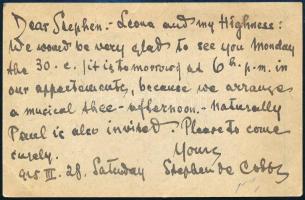 Dear Stephen. - Leona and my Highness:
We would be very glad to see you Monday
the 30. c. (it is to morrow) at 6 h. p. m. in
our appartements, because we arrange
a musical thee - afternoon. - Naturally
Paul is also invited. Please to come
surely.
Yours
915 III. 28. Saturday Stephen de